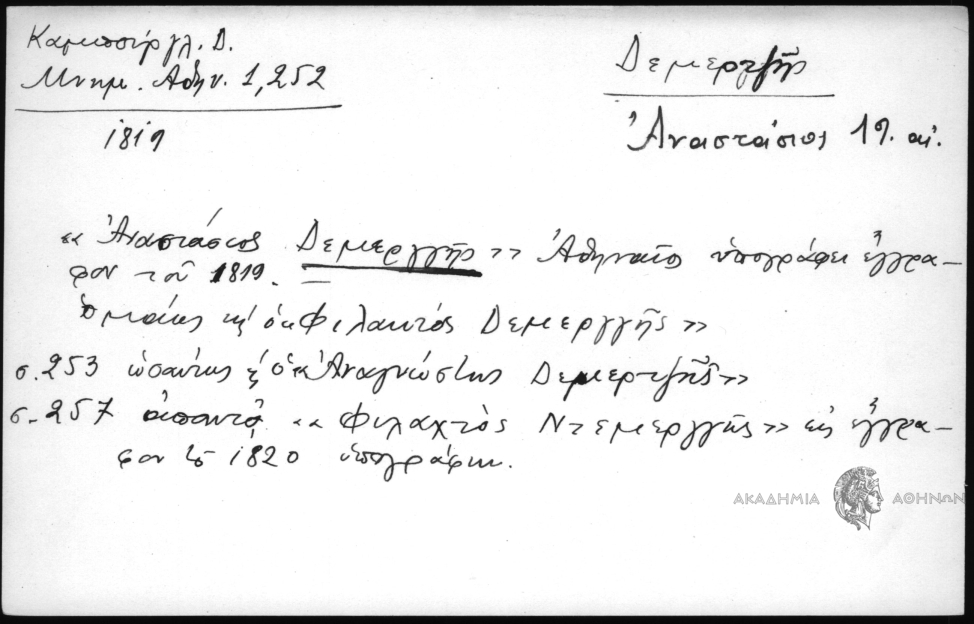 Καμπούργλ. Δ.
Μνημ. Αθην. 1,252
1819
Δεμερτζῆς
Ἀναστάσιος 19. αἰ.
«Ἀναστάσιος Δεμεργγῆς» Ἀθηναῖος ὑπογράφει ἔγγρα-
φον τοῦ 1819.
Ὁμοίως κ ὁ «Φιλαυτός Δεμεργγῆς»
σ. 253 ὡσαύτως ὁ «Ἀναγνώστης Δεμερτζῆς»
σ. 257 ἀπαντᾷ «Φιλαχτὸς Ντεμεργγῆς» εἰς ἔγγρα-
φον τοῦ 1820 ὑπογράφων.
ΑΚΑΔΗΜΙΑ ΑΘΗΝΩΝ